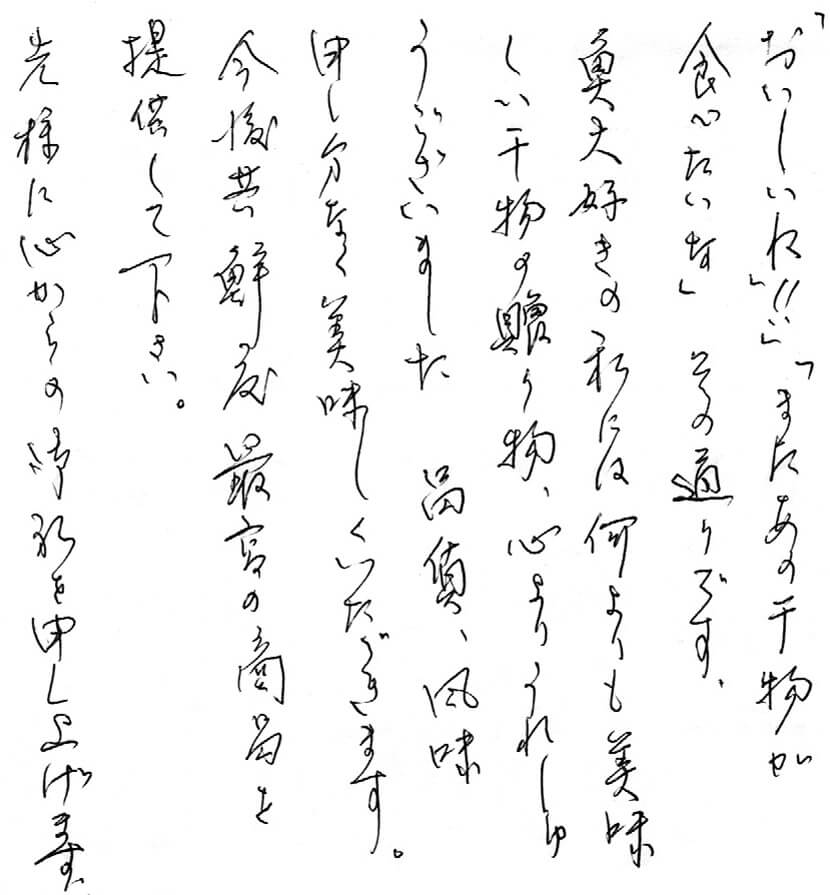 「おいしいね!!」「またあの干物が
食べたいな」 その通りです、
魚大好きの私には何よりも美味
しい干物の贈り物、心よりうれしゅ
うございました 品質、風味
申し分なく美味しくいただきます。
今後共鮮度最高の商品を
提供して下さい。
先様に心からの御礼を申し上げます、